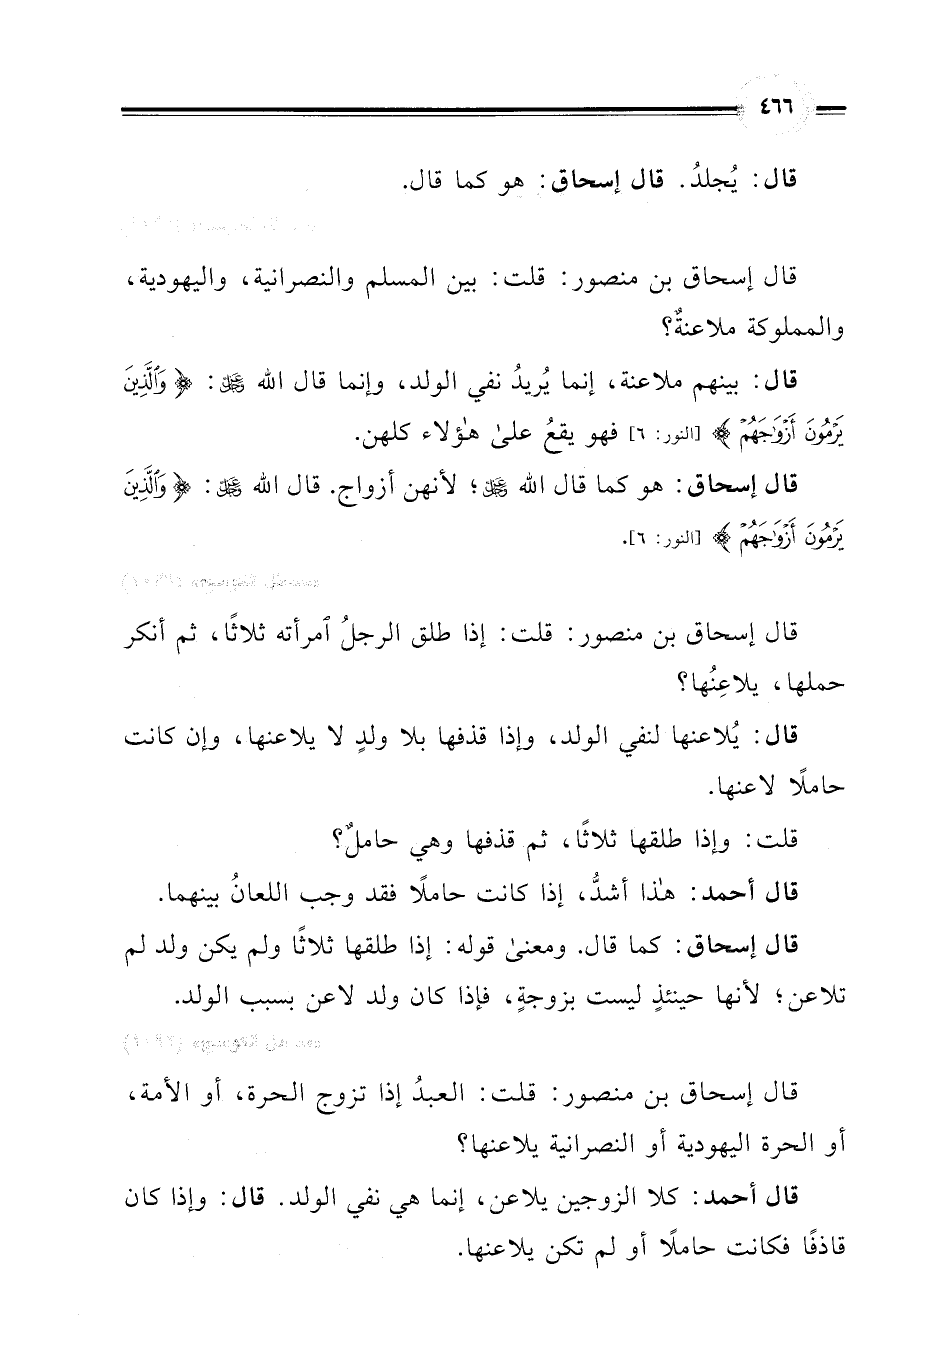 ٤٦٦
قال: يُجلدُ. قال إسحاق: هو كما قال.
قال إسحاق بن منصور: قلت: بين المسلم والنصرانية، واليهودية،
والمملوكة ملاعنةٌ؟
قال: بينهم ملاعنة، إنما يُريدُ نفي الولد، وإنما قال الله ﷺ: ﴿وَٱلَّذِينَ
يَرْمُونَ أَزْوَٰجَهُمْ﴾ [النور: ٦] فهو يقعُ علىٰ هـٰؤلاء كلهن.
قال إسحاق: هو كما قال الله ﷺ؛ لأنهن أزواج. قال الله ﷺ: ﴿وَٱلَّذِينَ
يَرْمُونَ أَزْوَٰجَهُمْ﴾ [النور: ٦].
قال إسحاق بن منصور: قلت: إذا طلق الرجلُ ٱمرأته ثلاثًا، ثم أنكر
حملها، يلاعِنُها؟
قال: يُلاعنها لنفي الولد، وإذا قذفها بلا ولدٍ لا يلاعنها، وإن كانت
حاملًا لاعنها.
قلت: وإذا طلقها ثلاثًا، ثم قذفها وهي حاملٌ؟
قال أحمد: هـٰذا أشدُّ، إذا كانت حاملًا فقد وجب اللعانُ بينهما.
قال إسحاق: كما قال. ومعنىٰ قوله: إذا طلقها ثلاثًا ولم يكن ولد لم
تلاعن؛ لأنها حينئذٍ ليست بزوجةٍ، فإذا كان ولد لاعن بسبب الولد.
قال إسحاق بن منصور: قلت: العبدُ إذا تزوج الحرة، أو الأمة،
أو الحرة اليهودية أو النصرانية يلاعنها؟
قال أحمد: كلا الزوجين يلاعن، إنما هي نفي الولد. قال: وإذا كان
قاذفًا فكانت حاملًا أو لم تكن يلاعنها.